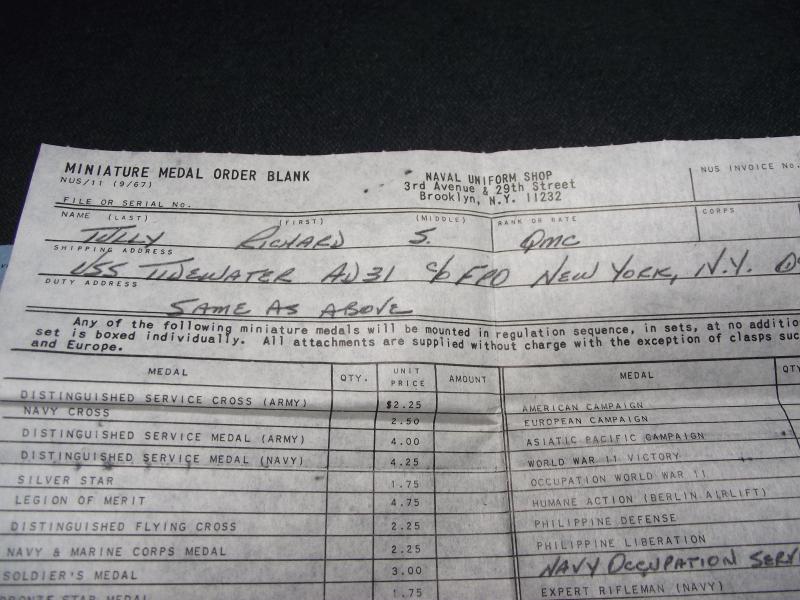 MINIATURE MEDAL ORDER BLANK
NUS/11 (9/67)
NAVAL UNIFORM SHOP
3rd Avenue & 29th Street
Brooklyn, N.Y. 11232
NUS INVOICE No.
FILE OR SERIAL No.
NAME (LAST) (FIRST) (MIDDLE) RANK OR RATE CORPS
TULLY RICHARD S. QMC
SHIPPING ADDRESS
USS TIDEWATER AD31 c/o FPO NEW YORK, N.Y.
DUTY ADDRESS
SAME AS ABOVE
Any of the following miniature medals will be mounted in regulation sequence, in sets, at no additio
set is boxed individually. All attachments are supplied without charge with the exception of clasps suc
and Europe.
MEDAL QTY. UNIT PRICE AMOUNT MEDAL QTY
DISTINGUISHED SERVICE CROSS (ARMY) $2.25 AMERICAN CAMPAIGN
NAVY CROSS 2.50 EUROPEAN CAMPAIGN
DISTINGUISHED SERVICE MEDAL (ARMY) 4.00 ASIATIC PACIFIC CAMPAIGN
DISTINGUISHED SERVICE MEDAL (NAVY) 4.25 WORLD WAR 11 VICTORY
SILVER STAR 1.75 OCCUPATION WORLD WAR 11
LEGION OF MERIT 4.75 HUMANE ACTION (BERLIN AIRLIFT)
DISTINGUISHED FLYING CROSS 2.25 PHILIPPINE DEFENSE
NAVY & MARINE CORPS MEDAL 2.25 PHILIPPINE LIBERATION
SOLDIER'S MEDAL 3.00 NAVY OCCUPATION SERV
BRONZE STAR MEDAL 1.75 EXPERT RIFLEMAN (NAVY)